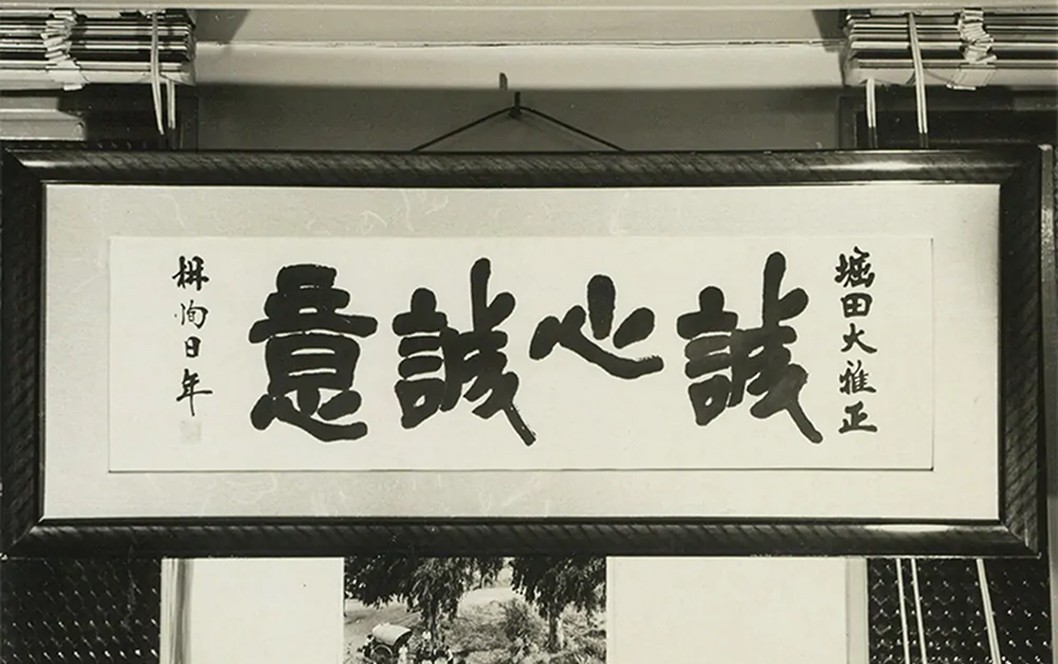 堀田大雅正
誠心誠意
恂日年